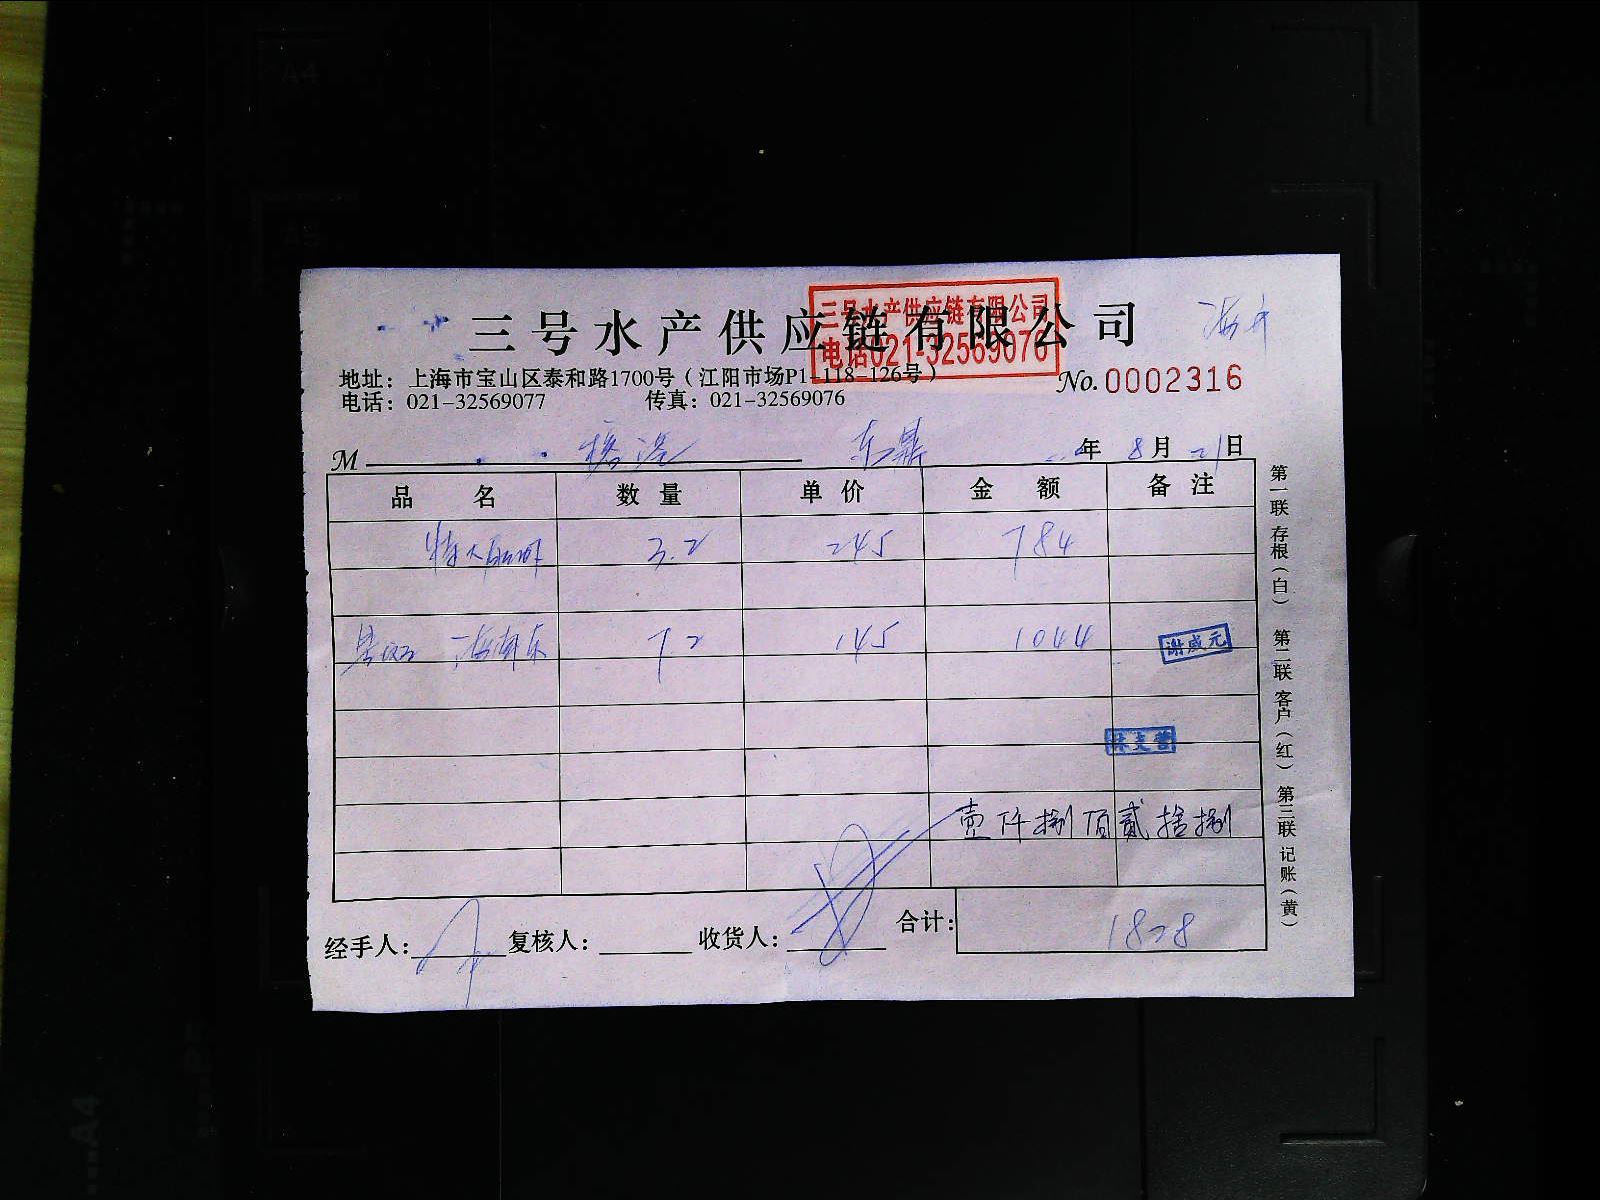 三号水产供应链有限公司
三号水产供应链有限公司
电话021-32569076
地址：上海市宝山区泰和路1700号（江阳市场P1-118-126号）
No. 0002316
电话：021-32569077 传真：021-32569076
M 东鼎 年 8月 21日
品名 数量 单价 金额 备注
3.2 245 784
7.2 145 1044
谢咸元
壹仟捌佰贰拾捌
经手人： 复核人： 收货人： 合计： 1828
第一联 存根（白） 第二联 客户（红） 第三联 记账（黄）